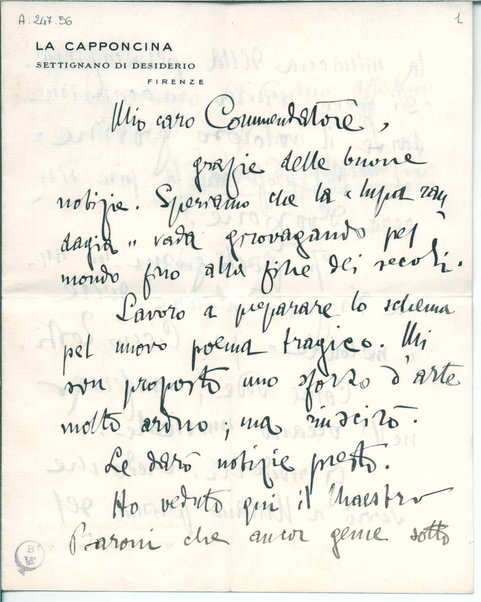 A. 247.56
1
LA CAPPONCINA
SETTIGNANO DI DESIDERIO
FIRENZE
Mio caro Commendatore,
grazie delle buone
notizie. Speriamo che la « lupa ran
dagia » vada girovagando pel
mondo fino alla fine dei secoli.
Lavoro a preparare lo schema
pel nuovo poema tragico. Mi
son proposto uno sforzo d'arte
molto arduo; ma riuscirò.
Le darò notizie presto.
Ho veduto qui il Maestro
Baroni che ancor geme sotto